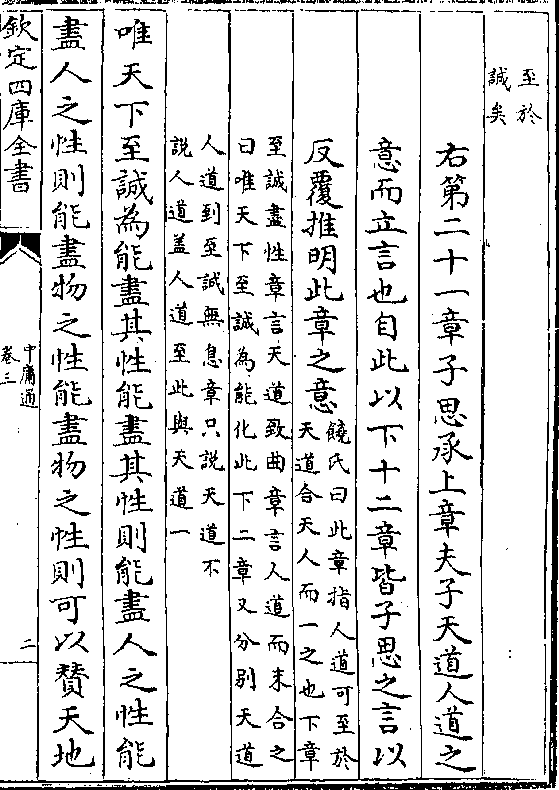 至於
誠矣
右第二十一章子思承上章夫子天道人道之
意而立言也自此以下十二章皆子思之言以
反覆推明此章之意
饒氏曰此章指人道可至於
天道合天人而一之也下章
至誠盡性章言天道致曲章言人道而末合之
曰唯天下至誠為能化此下二章又分别天道
人道到至誠無息章只説天道不
説人道蓋人道至此與天道一
唯天下至誠為能盡其性能盡其性則能盡人之性能
盡人之性則能盡物之性能盡物之性則可以贊天地
欽定四庫全書
中庸通
卷三
二